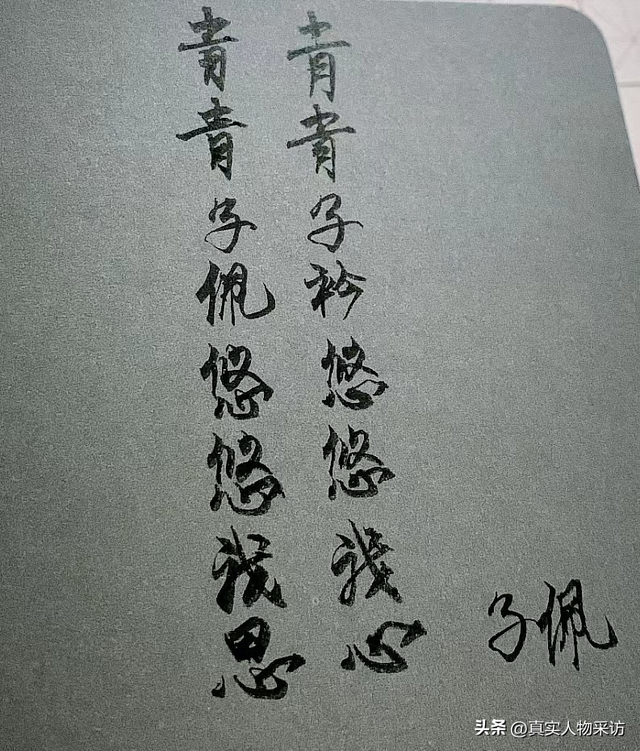 青青子衿悠悠我心
青青子佩悠悠我思
子佩
头条 @真实人物采访